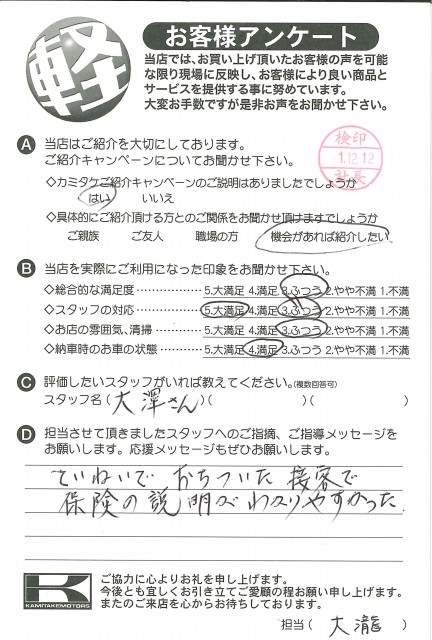 軽
お客様アンケート
当店では、お買い上げ頂いたお客様の声を可能
な限り現場に反映し、お客様により良い商品と
サービスを提供する事に努めています。
大変お手数ですが是非お声をお聞かせ下さい。
検印
1.12.12
社長
A 当店はご紹介を大切にしております。
ご紹介キャンペーンについてお聞かせ下さい。
◇カミタケご紹介キャンペーンのご説明はありましたでしょうか
はい いいえ
◇具体的にご紹介頂ける方とのご関係をお聞かせ頂けますでしょうか
ご親族 ご友人 職場の方 機会があれば紹介したい
B 当店を実際にご利用になった印象をお聞かせ下さい。
◇総合的な満足度 ……………… 5.大満足 4.満足 3.ふつう 2.やや不満 1.不満
◇スタッフの対応 ……………… 5.大満足 4.満足 3.ふつう 2.やや不満 1.不満
◇お店の雰囲気、清掃 ………… 5.大満足 4.満足 3.ふつう 2.やや不満 1.不満
◇納車時のお車の状態 ………… 5.大満足 4.満足 3.ふつう 2.やや不満 1.不満
C 評価したいスタッフがいれば教えてください。(複数回答可)
スタッフ名 ( 大澤さん )( )( )
D 担当させて頂きましたスタッフへのご指摘、ご指導メッセージを
お願いします。応援メッセージもぜひお願いします。
ていねいで おちついた 接客で
保険の説明がわかりやすかった
K
KAMITAKEMOTORS
ご協力に心よりお礼を申し上げます。
今後とも宜しくお引き立てご愛顧の程お願い申し上げます。
またのご来店を心からお待ちしております。
担当 ( 大瀧 )